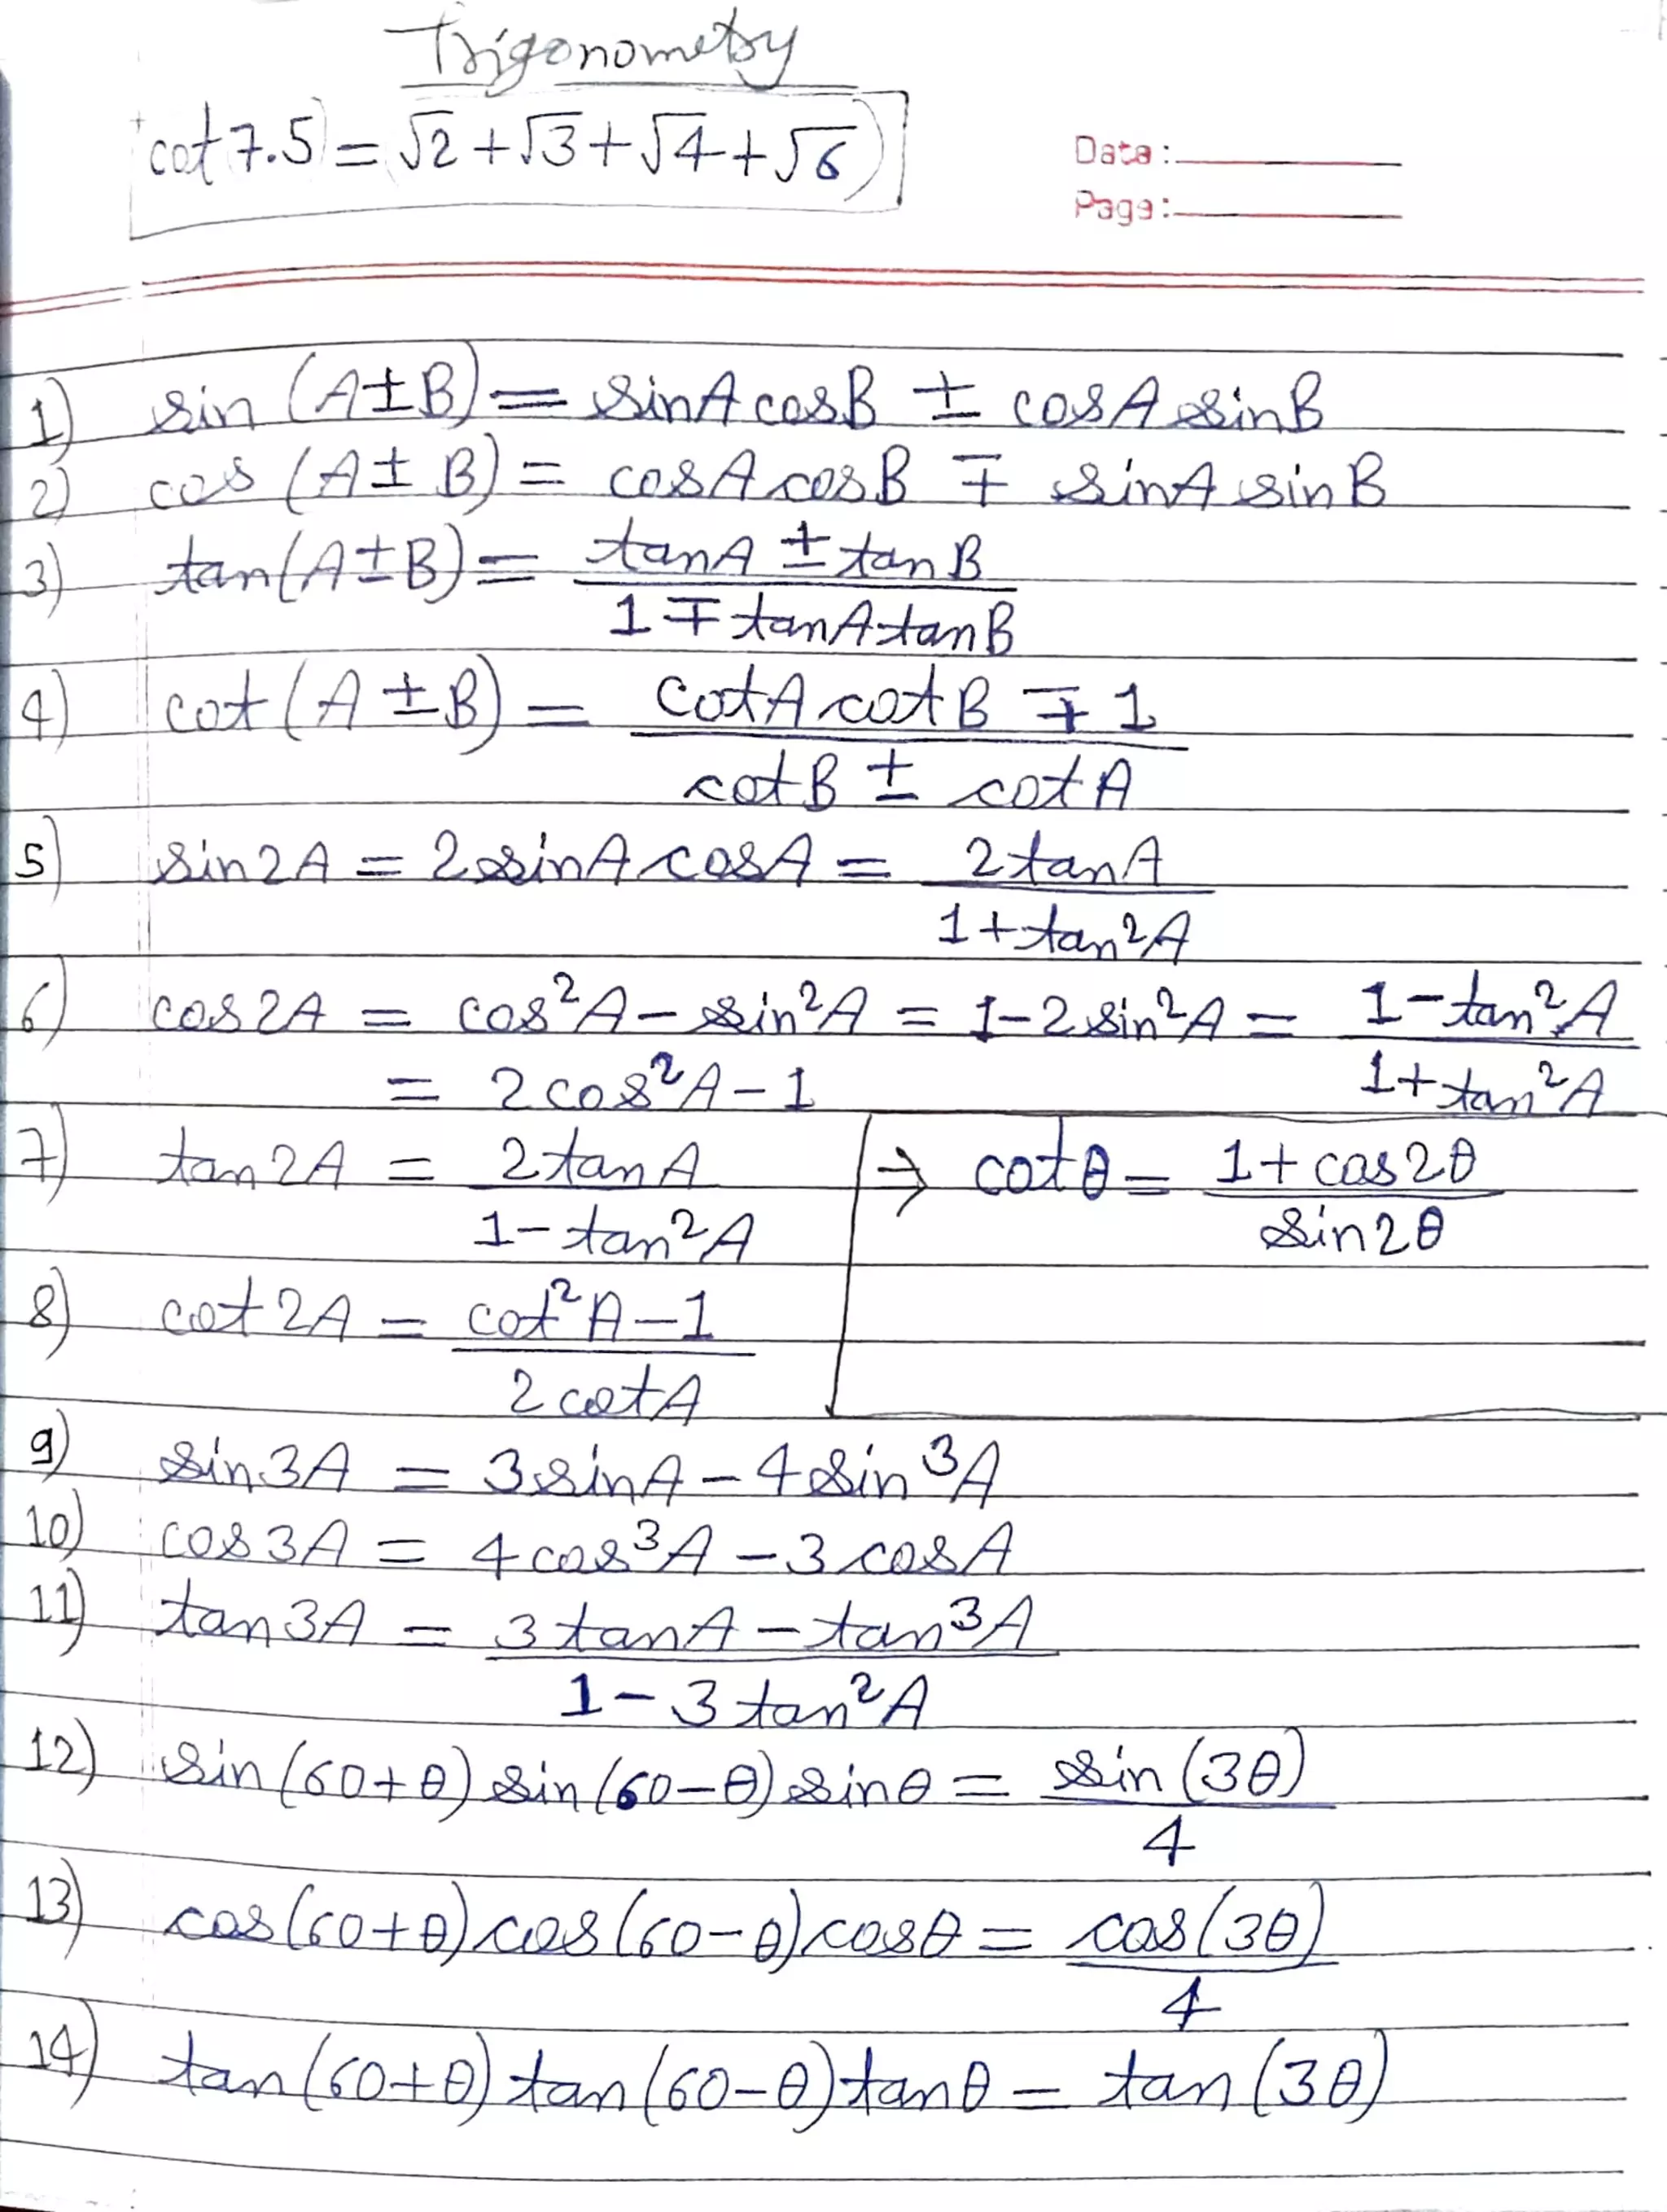 Trigonometry
cot 7.5 = √2 + √3 + √4 + √6
Date :
Page :
1) sin (A ± B) = sinA cosB ± cosA sinB
2) cos (A ± B) = cosA cosB ∓ sinA sinB
3) tan(A ± B) = tanA ± tanB
1 ∓ tanA tanB
4) cot (A ± B) = cotA cotB ∓ 1
cotB ± cotA
5) sin2A = 2sinA cosA = 2tanA
1 + tan²A
6) cos2A = cos²A - sin²A = 1 - 2sin²A = 1 - tan²A
1 + tan²A
= 2cos²A - 1
7) tan2A = 2tanA
1 - tan²A
⇒ cotθ = 1 + cos2θ
sin2θ
8) cot2A = cot²A - 1
2cotA
9) sin3A = 3sinA - 4sin³A
10) cos3A = 4cos³A - 3cosA
11) tan3A = 3tanA - tan³A
1 - 3tan²A
12) sin(60+θ) sin(60-θ) sinθ = sin(3θ)
4
13) cos(60+θ) cos(60-θ) cosθ = cos(3θ)
4
14) tan(60+θ) tan(60-θ) tanθ = tan(3θ)